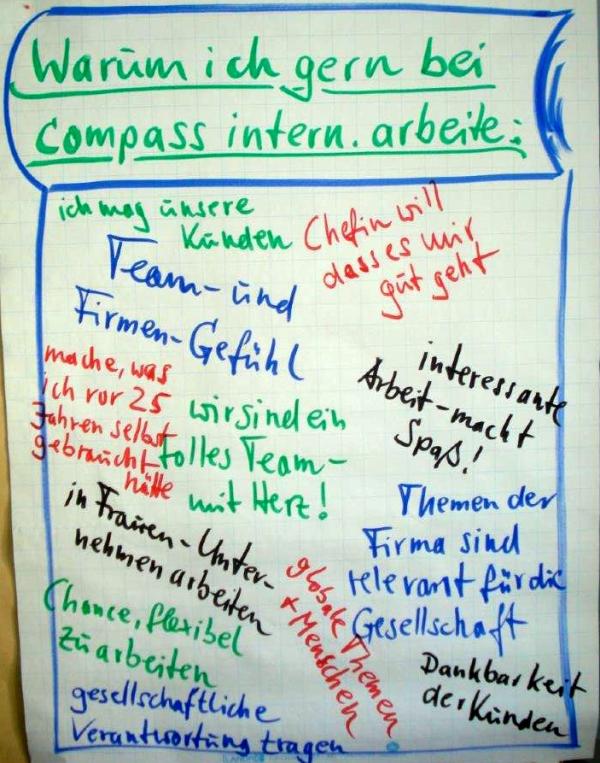 Warum ich gern bei
compass intern. arbeite:
ich mag unsere
Kunden
Chefin will
dass es mir
gut geht
Team- und
Firmen-Gefühl
mache, was
ich vor 25
Jahren selbst
gebraucht
hätte
interessante
Arbeit - macht
Spaß!
wir sind ein
tolles Team -
mit Herz!
Themen der
Firma sind
relevant für die
Gesellschaft
in Frauen-Unter-
nehmen arbeiten
globale Themen
+ Menschen
Chance, flexibel
zu arbeiten
Dankbarkeit
der Kunden
gesellschaftliche
Verantwortung tragen